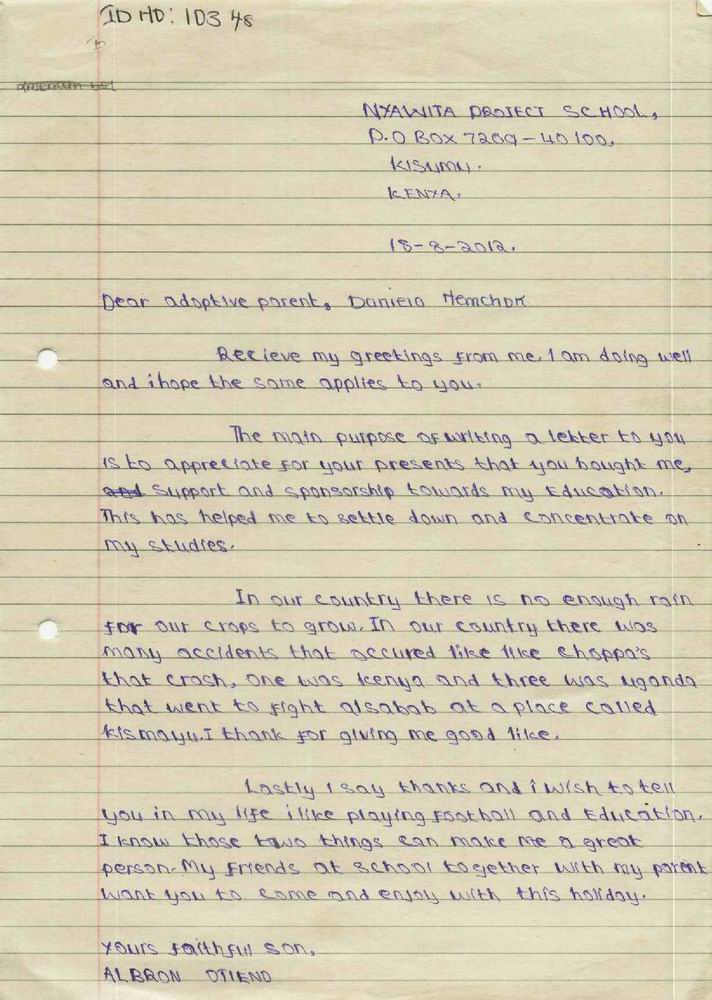 ID NO: 103 48
NYAWITA PROJECT SCHOOL,
P.O BOX 7209-40100,
KISUMU.
KENYA.
18-8-2012.
Dear adoptive parent, Daniela Hemchok
Recieve my greetings from me. I am doing well
and i hope the same applies to you.
The main purpose of writing a letter to you
is to appreciate for your presents that you bought me,
and support and sponsorship towards my Education.
This has helped me to settle down and concentrate on
my studies.
In our country there is no enough rain
for our crops to grow. In our country there was
many accidents that occured like like choppa's
that crash, one was kenya and three was uganda
that went to fight alsabab at a place called
kismayu. I thank for giving me good like.
Lastly i say thanks and i wish to tell
you in my life i like playing football and Education.
I know those two things can make me a great
person. My friends at school together with my parent
want you to come and enjoy with this holiday.
Yours faithful son,
ALBRON OTIENO